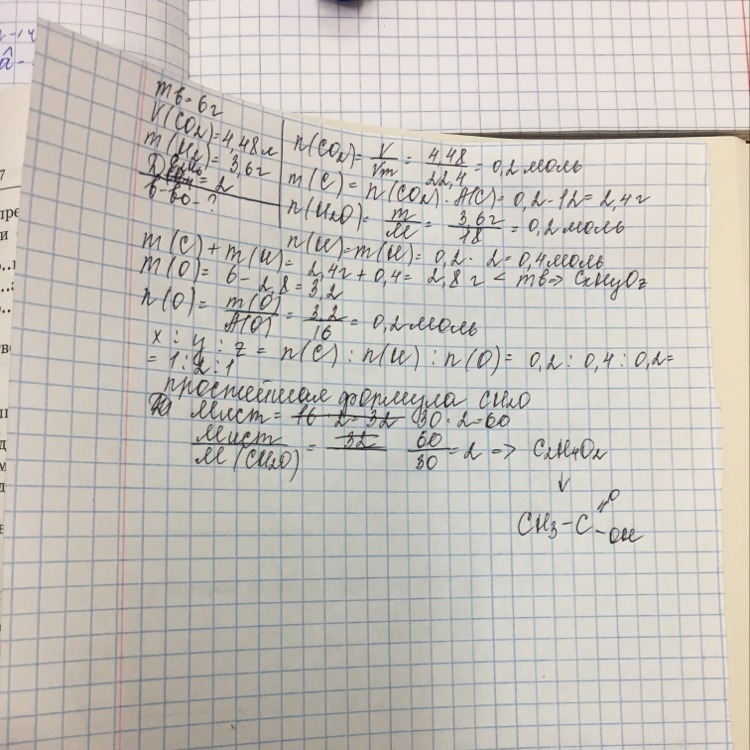 m в = 6 г
V(CO2) = 4,48 л
m(H2) = 3,6 г
= 2
в-во - ?
n(CO2) = V/Vm = 4,48/22,4 = 0,2 моль
m(C) = n(CO2) · A(C) = 0,2 · 12 = 2,4 г
n(H2O) = m/M = 3,6 г/18 = 0,2 моль
n(H) = m(H) = 0,2 · 2 = 0,4 моль
m(C) + m(H) = 2,4 г + 0,4 = 2,8 г < m в => CxHyOz
m(O) = 6 - 2,8 = 3,2
n(O) = m(O)/A(O) = 3,2/16 = 0,2 моль
x : y : z = n(C) : n(H) : n(O) = 0,2 : 0,4 : 0,2 =
= 1 : 2 : 1
простейшая формула CH2O
Mист = 16 · 2 = 32 30 · 2 = 60
Mист/M(CH2O) = 32 60/30 = 2 => C2H4O2
↓
CH3 - C =O - OH